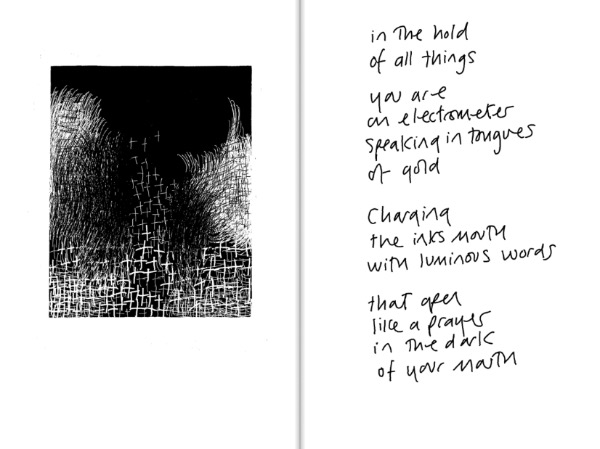 in the hold
of all things
you are
an electrometer
speaking in tongues
of gold
Charging
the inks mouth
with luminous words
that open
like a prayer
in the dark
of your mouth